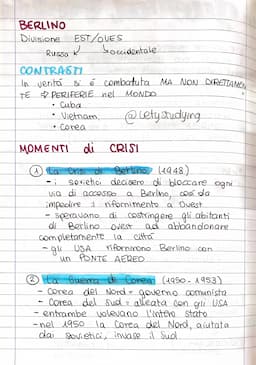 BERLINO
Divisione EST/OVES
Russa occidentale
CONTRASTI
In verità si è combattuta MA NON DIRETTAMEN
TE → PERIFERIE nel MONDO
• Cuba
• Vietnam
• Corea
@letystudying
MOMENTI di CRISI
① La crisi di Berlino (1948)
- i sovietici decisero di bloccare ogni
via di accesso a Berlino, così da
impedire il rifornimento a Ovest
- speravano di costringere gli abitanti
di Berlino ovest ad abbandonare
completamente la città
- gli USA rifornirono Berlino con
un PONTE AEREO
② La Guerra di Corea (1950-1953)
- Corea del Nord = governo comunista
- Corea del Sud = alleata con gli USA
- entrambe volevano l'intero stato
- nel 1950 la Corea del Nord, aiutata
dai sovietici, invase il Sud